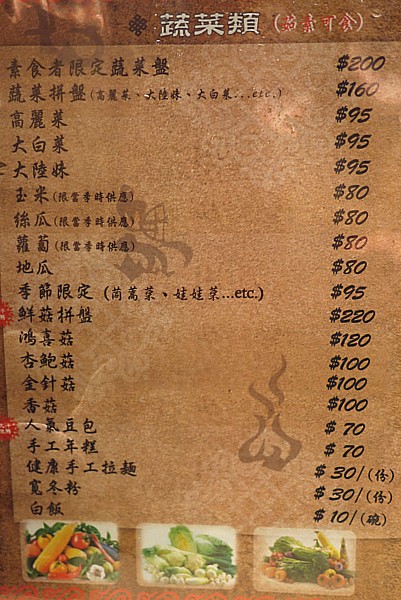 蔬菜類 (茹素可食)
素食者限定蔬菜盤 $200
蔬菜拼盤(高麗菜、大陸妹、大白菜...etc.) $160
高麗菜 $95
大白菜 $95
大陸妹 $95
玉米(限當季時供應) $80
絲瓜(限當季時供應) $80
蘿蔔(限當季時供應) $80
地瓜 $80
季節限定 (茼蒿菜、娃娃菜...etc.) $95
鮮菇拼盤 $220
鴻喜菇 $120
杏鮑菇 $100
金針菇 $100
香菇 $100
人氣豆包 $70
手工年糕 $70
健康手工拉麵 $30/(份)
寬冬粉 $30/(份)
白飯 $10/(碗)